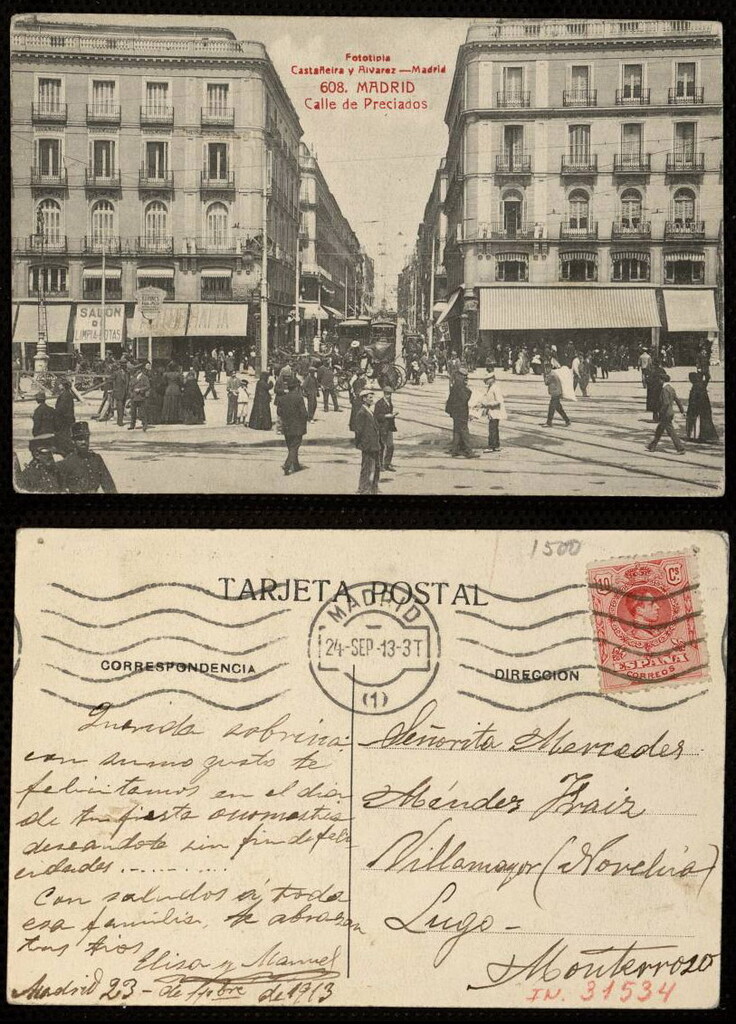 Fototipia
Castañeira y Alvarez — Madrid
608. MADRID
Calle de Preciados
SALON
D
LIMPIA-BOTAS
1500
TARJETA POSTAL
MADRID
24-SEP-13-3T
(1)
CORRESPONDENCIA
DIRECCION
10 Cs
ESPAÑA
CORREOS
Querida sobrina:
con sumo gusto te
felicitamos en el dia
de tu fiesta onomastica
deseandote sin fin de feli
cidades..........
Con saludos á toda
esa familia, te abrazan
tus tios
Elisa y Manuel
Madrid 23 - de 7bre de 1913
Señorita Mercedes
Méndez
Villamayor (Novelúa)
Lugo-
Monterroso
IN. 31534